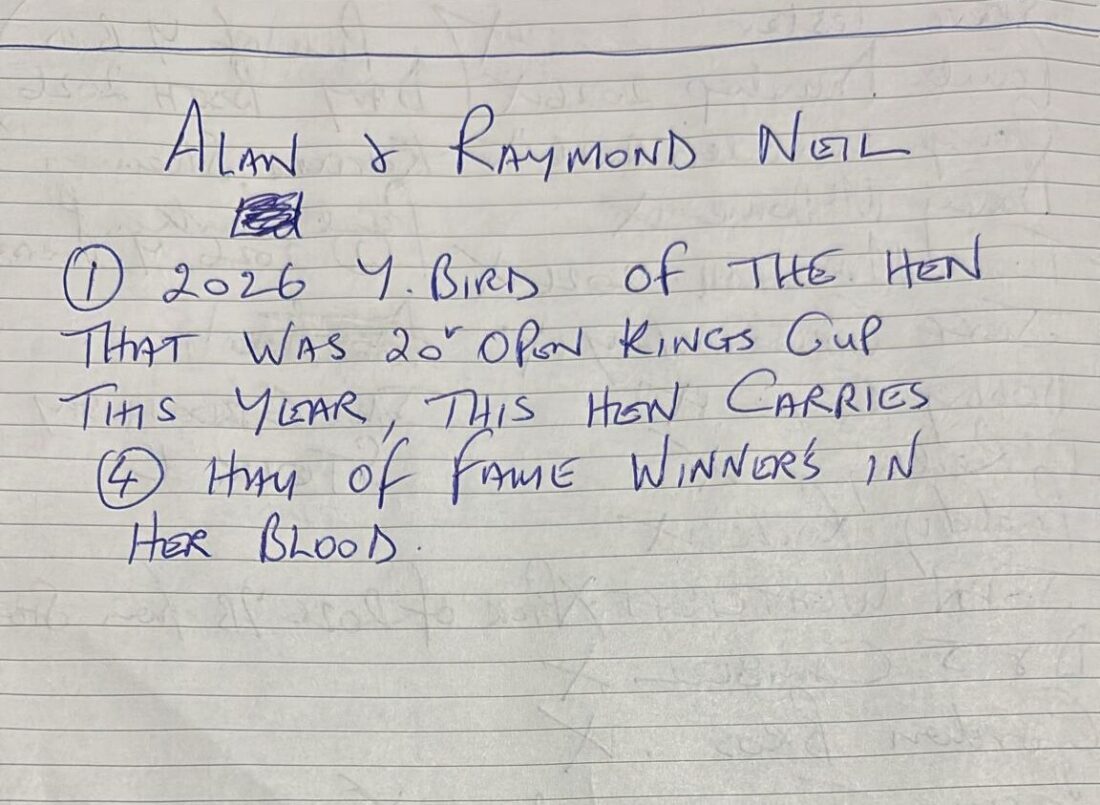 ALAN & RAYMOND NEIL
① 2026 Y. BIRD of THE HEN
THAT WAS 20 OPEN KINGS CUP
THIS YEAR, THIS HEN CARRIES
④ HALL OF FAME WINNER'S IN
HER BLOOD.